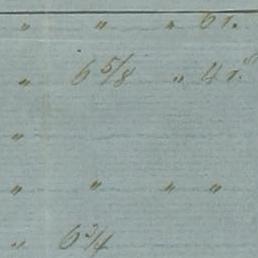 " " " 61.
" 6 5/8 " 41."
"
" " " "
" 6 3/4